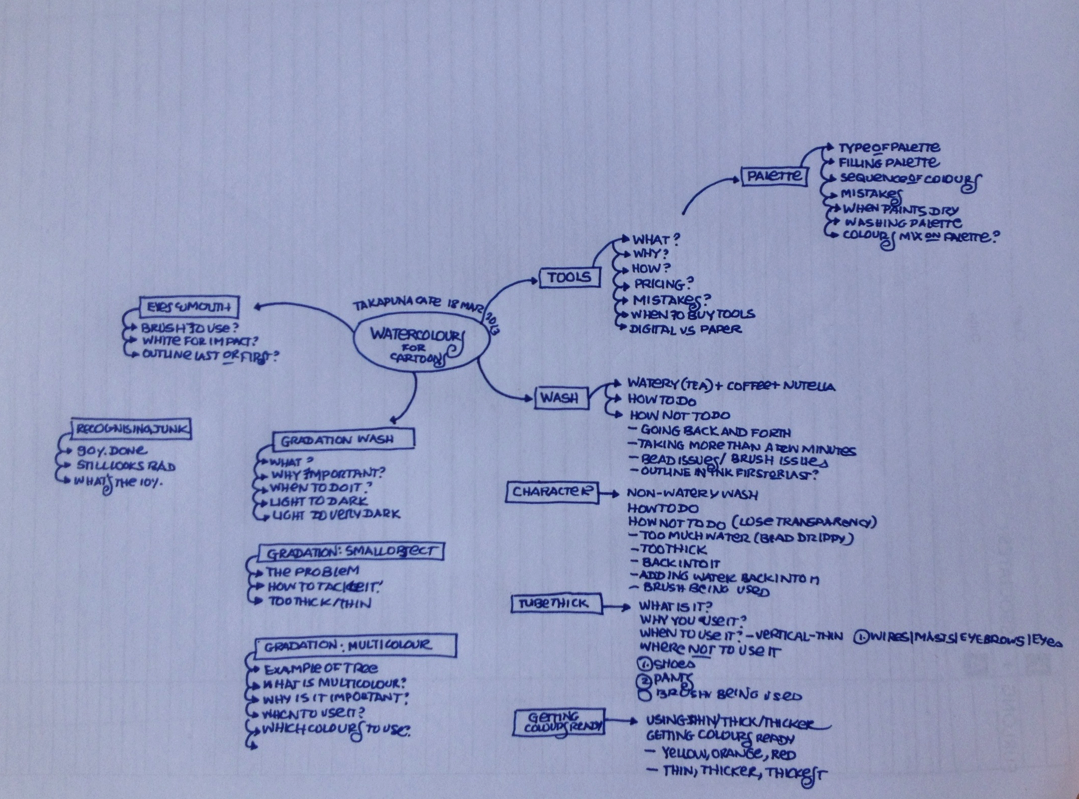 TAKAPUNA CAFE 18 MAR 2013
WATERCOLOURS
FOR
CARTOONS
PALETTE
TYPE OF PALETTE
FILLING PALETTE
SEQUENCE OF COLOURS
MISTAKES
WHEN PAINTS DRY
WASHING PALETTE
COLOURS MIX ON PALETTE?
TOOLS
WHAT?
WHY?
HOW?
PRICING?
MISTAKES?
WHEN TO BUY TOOLS
DIGITAL VS PAPER
WASH
WATERY (TEA) + COFFEE + NUTELLA
HOW TO DO
HOW NOT TO DO
- GOING BACK AND FORTH
- TAKING MORE THAN A FEW MINUTES
- BEAD ISSUES/ BRUSH ISSUES
- OUTLINE IN INK FIRST OR LAST?
CHARACTER
NON-WATERY WASH
HOW TO DO
HOW NOT TO DO (LOSE TRANSPARENCY)
- TOO MUCH WATER (BEAD DRIPPY)
- TOO THICK
- BACK INTO IT
- ADDING WATER BACK INTO IT
- BRUSH BEING USED
TUBE THICK
WHAT IS IT?
WHY YOU USE IT?
WHEN TO USE IT? - VERTICAL-THIN ① WIRES|MASTS|EYEBROWS|EYES
WHERE NOT TO USE IT
① SHOES
② PANTS
BRUSH BEING USED
GETTING
COLOURS READY
USING THIN/THICK/THICKER
GETTING COLOURS READY
- YELLOW, ORANGE, RED
- THIN, THICKER, THICKEST
EYES & MOUTH
BRUSH TO USE?
WHITE FOR IMPACT?
OUTLINE LAST OR FIRST?
RECOGNISING JUNK
90%. DONE
STILL LOOKS BAD
WHAT'S THE 10%.
GRADATION WASH
WHAT?
WHY IMPORTANT?
WHEN TO DO IT?
LIGHT TO DARK
LIGHT TO VERY DARK
GRADATION: SMALL OBJECT
THE PROBLEM
HOW TO TACKLE IT!
TOO THICK/THIN
GRADATION: MULTICOLOUR
EXAMPLE OF TREE
WHAT IS MULTICOLOUR?
WHY IS IT IMPORTANT?
WHEN TO USE IT?
WHICH COLOURS TO USE?